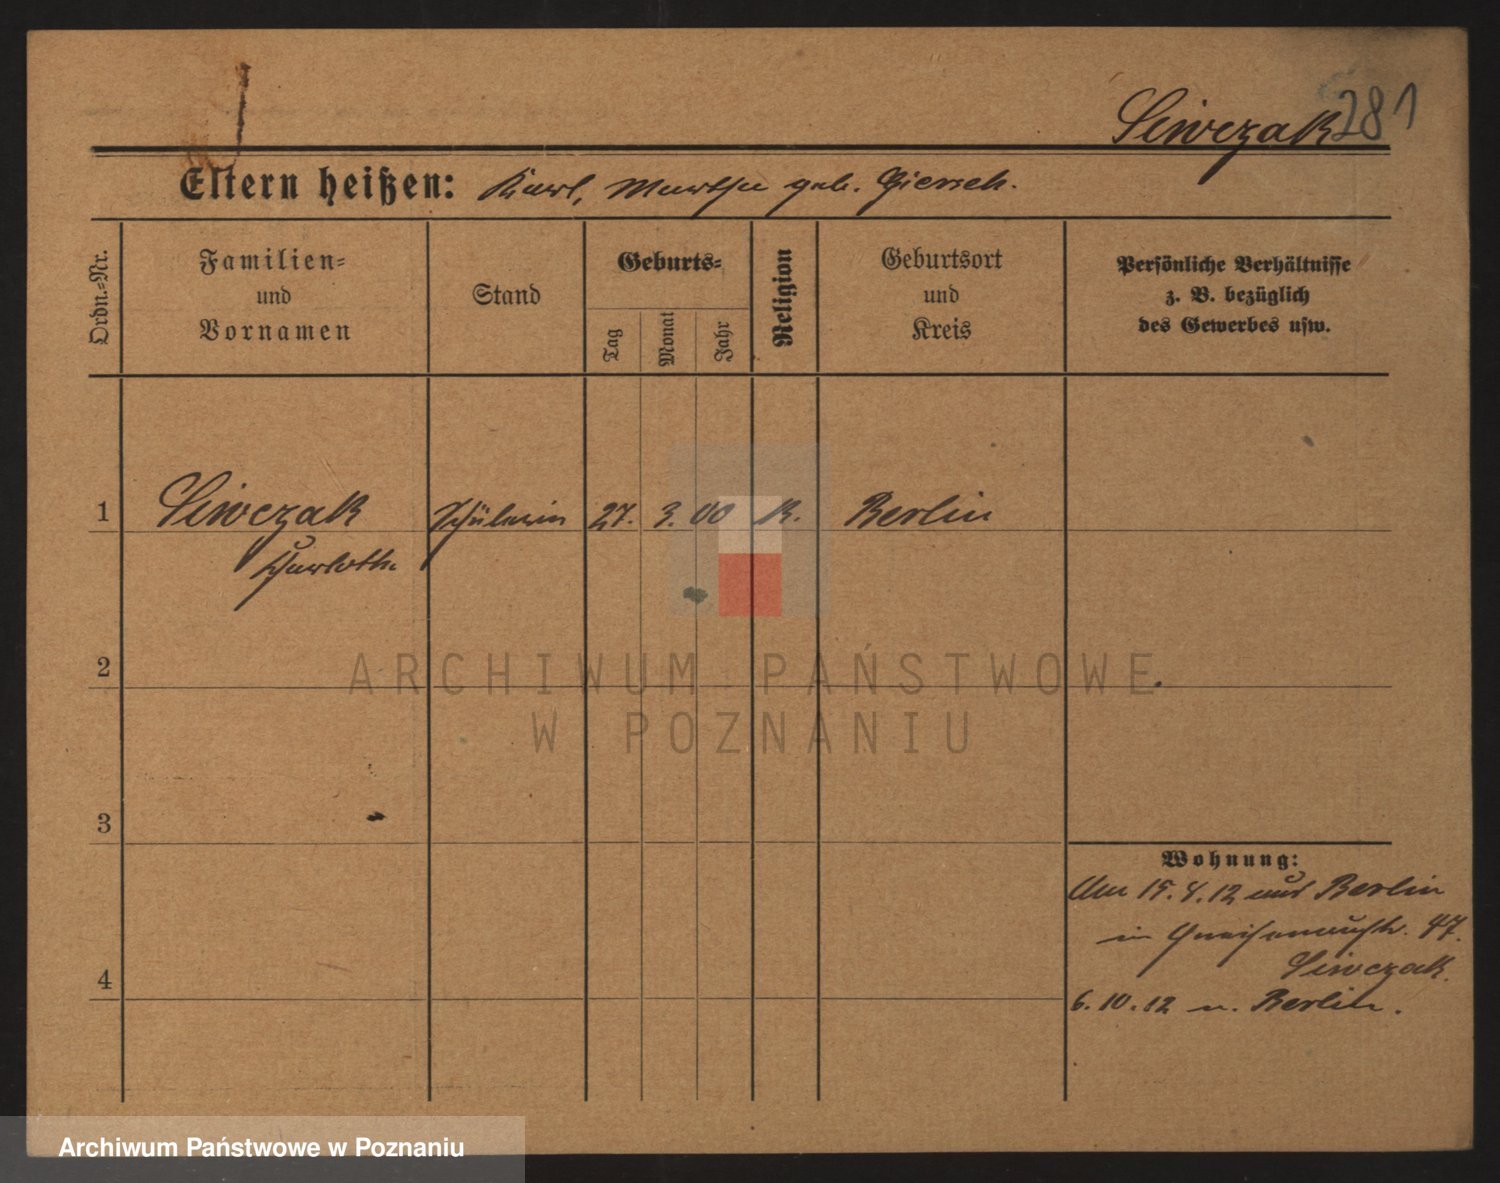 Siwczak 281
Eltern heißen: Karl, Martha geb. Giersch.
Ordn.-Nr.
Familien-
und
Vornamen
Stand
Geburts-
Tag
Monat
Jahr
Religion
Geburtsort
und
Kreis
Persönliche Verhältnisse
z. B. bezüglich
des Gewerbes usw.
1 Siwczak Schülerin 27. 3. 00 K. Berlin
2
3
4
Wohnung:
Am 15.4.12 aus Berlin
in Gneisenaustr. 47.
Siwczak.
6.10.12 n. Berlin.
ARCHIWUM PAŃSTWOWE
W POZNANIU
Archiwum Państwowe w Poznaniu